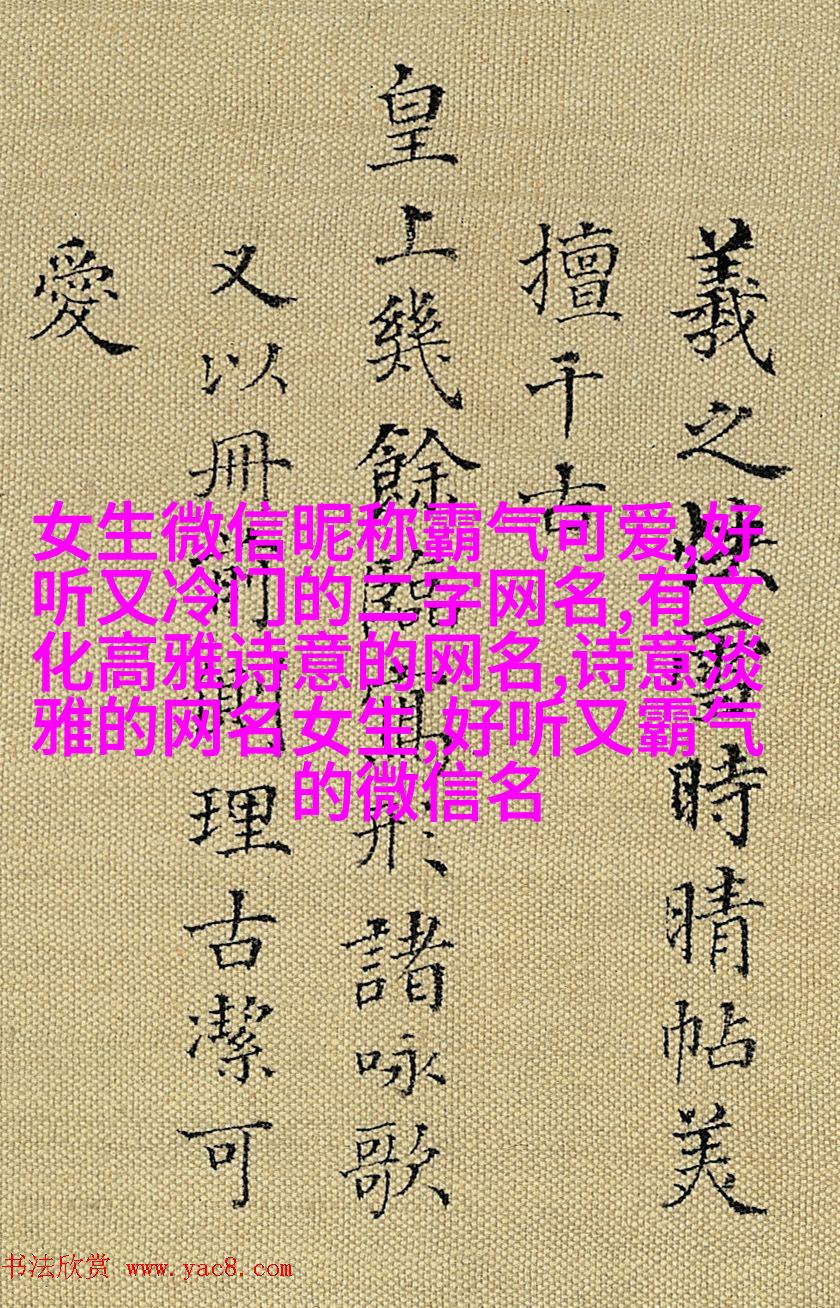 義之快雪時晴帖美
擅千古
皇上幾餘臨寫形諸咏歌
又以冊側理古潔可
愛
女生微信昵称霸气可爱,好
听又冷门的二字网名,有文
化高雅诗意的网名,诗意淡
雅的网名女生,好听又霸气
的微信名
书法欣赏 www.yac8.com